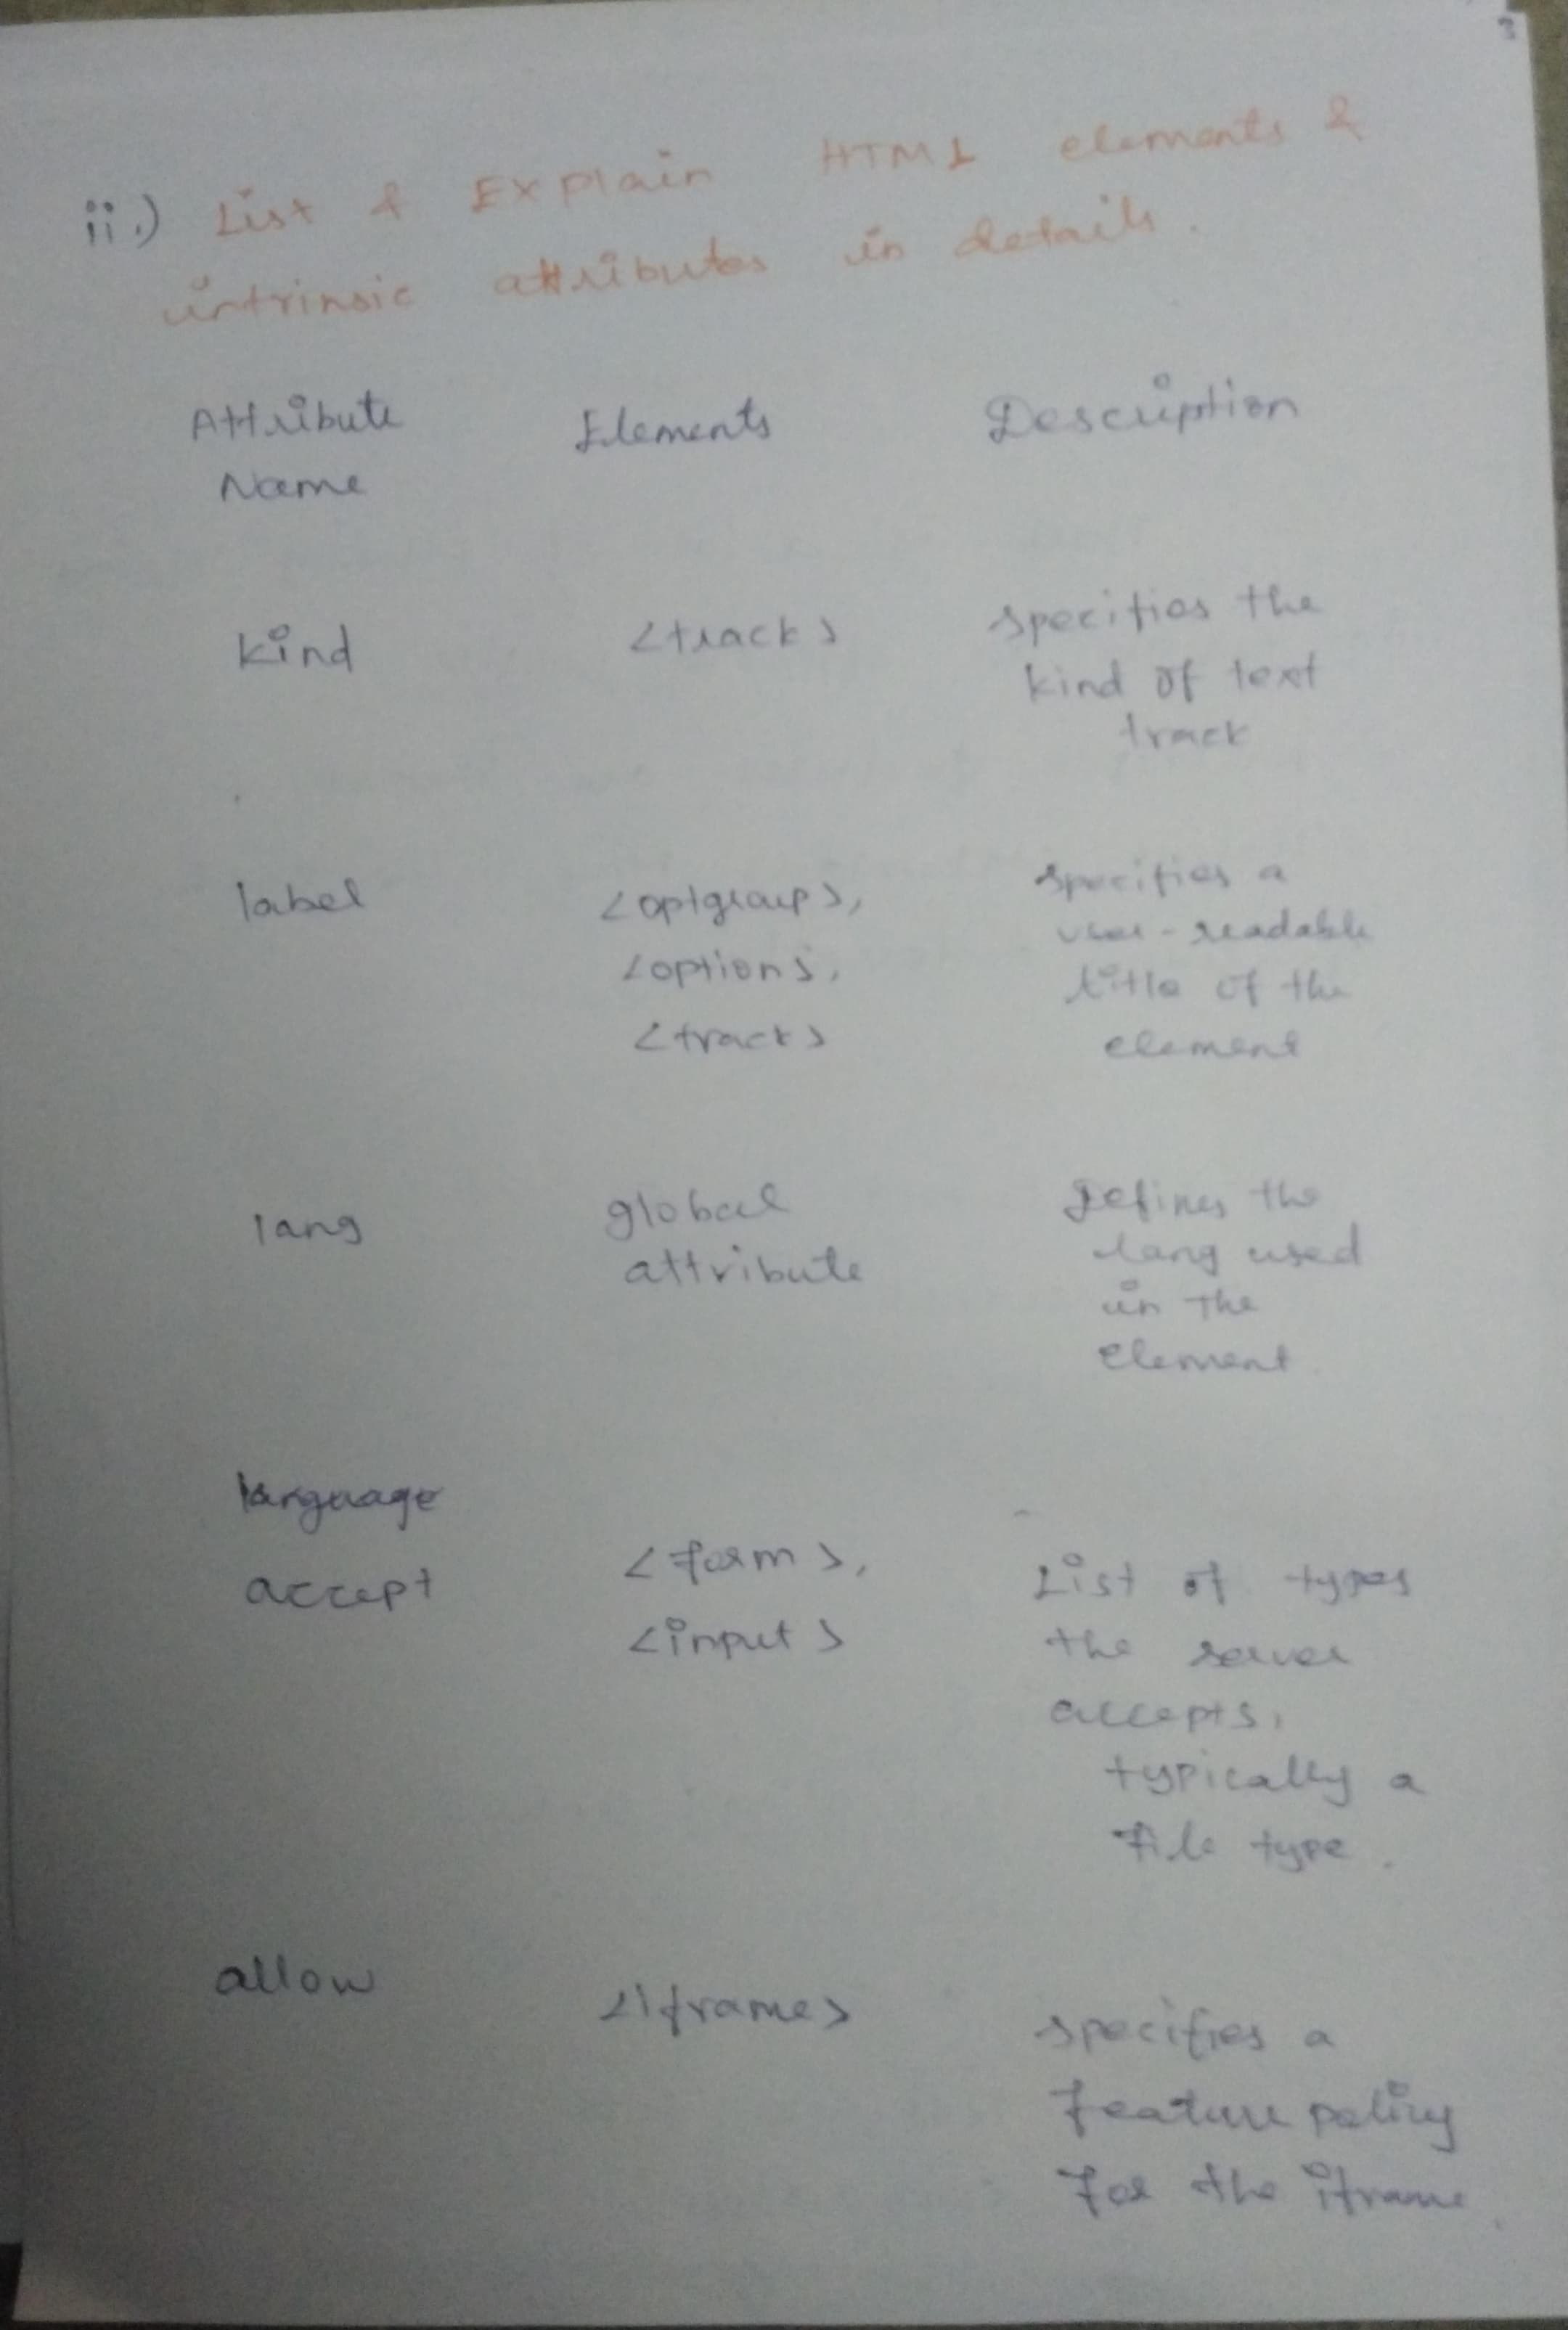 3
ii.) List & Explain HTML elements &
intrinsic attributes in details.
Attribute Name Elements Description
kind <track> specifies the
kind of text
track
label <optgroup>, specifies a
<option>, user-readable
<track> title of the
element
lang global defines the
attribute lang used
in the
element.
language
accept <form>, List of types
<input> the server
accepts,
typically a
file type.
allow <iframe> specifies a
feature policy
for the iframe.